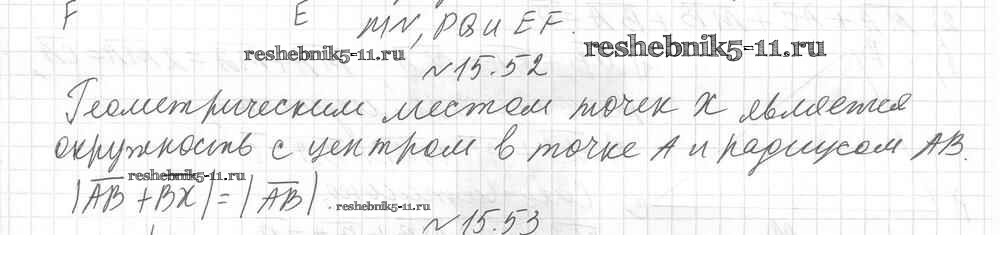 F E MN, PQ и EF.
reshebnik5-11.ru reshebnik5-11.ru
№15.52
Геометрическим местом точек X является
окружность с центром в точке A и радиусом AB.
reshebnik5-11.ru
|AB + BX| = |AB|. reshebnik5-11.ru
№15.53